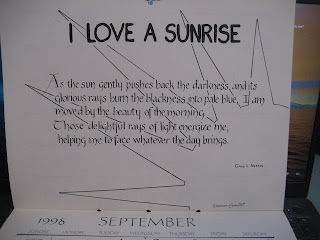 I LOVE A SUNRISE
As the sun gently pushes back the darkness, and its
glorious rays burn the blackness into pale blue, I am
moved by the beauty of the morning.
Those delightful rays of light energize me,
helping me to face whatever the day brings.
1998 SEPTEMBER
SUNDAY MONDAY TUESDAY WEDNESDAY THURSDAY FRIDAY SATURDAY